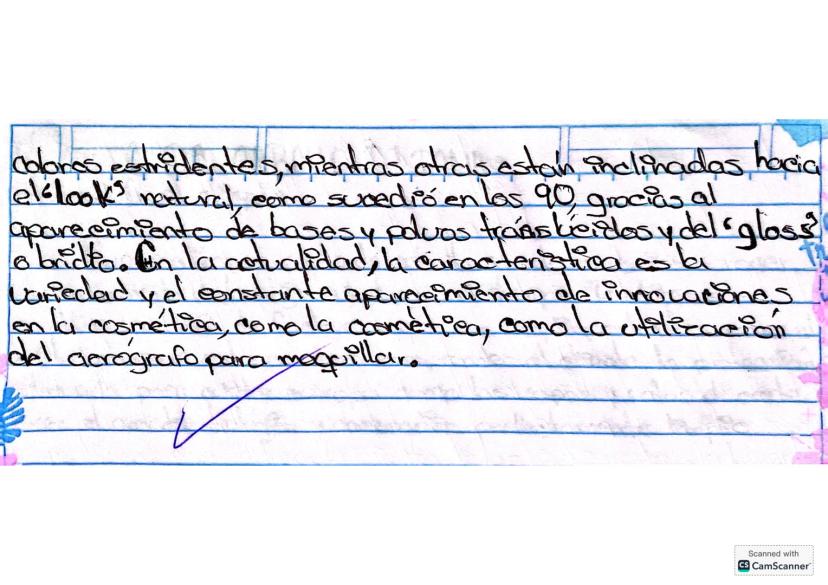 colores estridentes, mientras otras están inclinadas hacia
el "look" natural, como sucedió en los 90, gracias al
aparecimiento de bases y polvos translúcidos y del "gloss"
o brillo. En la actualidad, la característica es la
variedad y el constante aparecimiento de innovaciones
en la cosmética, como la cosmética, como la utilización
del aerógrafo para maquillar.
Scanned with
CS CamScanner